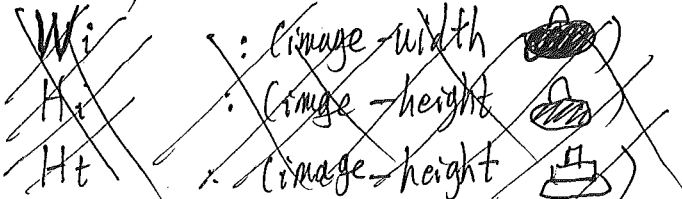 Wi : (image-width )
Hi : (image-height )
Ht : (image-height )